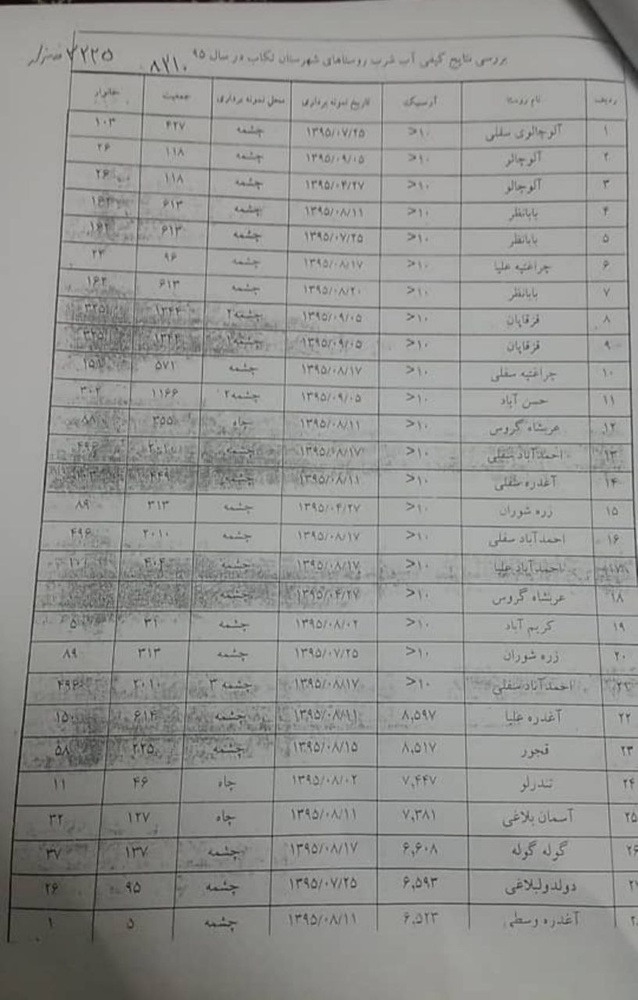 بررسی نتایج کیفی آب شرب روستاهای شهرستان تکاب در سال ۹۵ ۸۷۱۰ ۳۲۲۵
ردیف نام روستا آرسنیک تاریخ نمونه برداری محل نمونه برداری جمعیت خانوار
۱ آلوچالوی سفلی >۱۰ ۱۳۹۵/۰۷/۲۵ چشمه ۴۲۷ ۱۰۳
۲ آلوچالو >۱۰ ۱۳۹۵/۰۹/۰۵ چشمه ۱۱۸ ۲۶
۳ آلوچالو >۱۰ ۱۳۹۵/۰۴/۲۷ چشمه ۱۱۸ ۲۶
۴ بابانظر >۱۰ ۱۳۹۵/۰۸/۱۱ چشمه ۶۱۳ ۱۶۲
۵ بابانظر >۱۰ ۱۳۹۵/۰۷/۲۵ چشمه ۶۱۳ ۱۶۲
۶ چراغتپه علیا >۱۰ ۱۳۹۵/۰۸/۱۷ چشمه ۹۶ ۲۳
۷ بابانظر >۱۰ ۱۳۹۵/۰۸/۲۰ چشمه ۶۱۳ ۱۶۲
۸ قزقاپان >۱۰ ۱۳۹۵/۰۹/۰۵ چشمه۲ ۱۳۴۴ ۳۲۵
۹ قزقاپان >۱۰ ۱۳۹۵/۰۹/۰۵ چشمه۱ ۱۳۴۴ ۳۲۵
۱۰ چراغتپه سفلی >۱۰ ۱۳۹۵/۰۸/۱۷ چشمه ۵۷۱ ۱۵۱
۱۱ حسن آباد >۱۰ ۱۳۹۵/۰۹/۰۵ چشمه۲ ۱۱۶۶ ۳۰۲
۱۲ عربشاه گروس >۱۰ ۱۳۹۵/۰۸/۱۱ چاه ۳۵۵ ۸۸
۱۳ احمدآباد سفلی >۱۰ ۱۳۹۵/۰۸/۱۷ چشمه ۴۹۶
۱۴ آغدره سفلی >۱۰ ۱۳۹۵/۰۸/۱۱ چشمه ۴۴۹
۱۵ زره شوران >۱۰ ۱۳۹۵/۰۴/۲۷ چشمه ۳۱۳ ۸۹
۱۶ احمدآباد سفلی >۱۰ ۱۳۹۵/۰۸/۱۷ چشمه ۲۰۱۰ ۴۹۶
۱۷ احمدآباد علیا >۱۰ ۱۳۹۵/۰۸/۱۷ چشمه ۴۰۴
۱۸ عربشاه گروس >۱۰ ۱۳۹۵/۰۴/۲۷ چشمه
۱۹ کریم آباد >۱۰ ۱۳۹۵/۰۸/۰۲ چشمه ۳۱ ۵
۲۰ زره شوران >۱۰ ۱۳۹۵/۰۷/۲۵ چشمه ۳۱۳ ۸۹
۲۱ احمدآباد سفلی >۱۰ ۱۳۹۵/۰۸/۱۷ چشمه ۳ ۲۰۱۰ ۴۹۶
۲۲ آغدره علیا ۸٫۵۹۷ ۱۳۹۵/۰۸/۱۱ چشمه ۶۱۴ ۱۵۰
۲۳ قجور ۸٫۵۱۷ ۱۳۹۵/۰۸/۱۵ چشمه ۲۲۵ ۵۸
۲۴ تندرلو ۷٫۴۴۷ ۱۳۹۵/۰۸/۰۲ چاه ۴۶ ۱۱
۲۵ آسمان بلاغی ۷٫۳۸۱ ۱۳۹۵/۰۸/۱۱ چاه ۱۲۷ ۳۲
۲۶ گوله گوله ۶٫۶۰۸ ۱۳۹۵/۰۸/۱۷ چشمه ۱۳۷ ۳۷
۲۷ دولدولبلاغی ۶٫۵۹۳ ۱۳۹۵/۰۷/۲۵ چشمه ۹۵ ۲۶
آغدره وسطی ۶٫۵۲۳ ۱۳۹۵/۰۸/۱۱ چشمه ۵ ۱